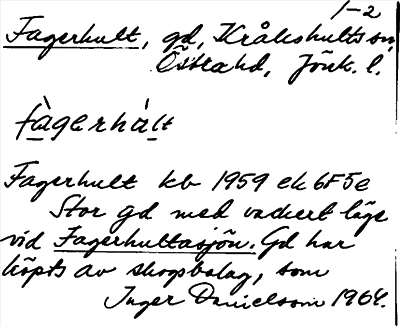 1-2
Fagerhult, gd, Kråkshults sn,
Östra hd, Jönk. l.
fàgerhùlt
Fagerhult kb 1959 ek 6F5e
Stor gd med vackert läge
vid Fagerhultasjön. Gd har
köpts av skogsbolag, som
Inger Danielsson 1964.